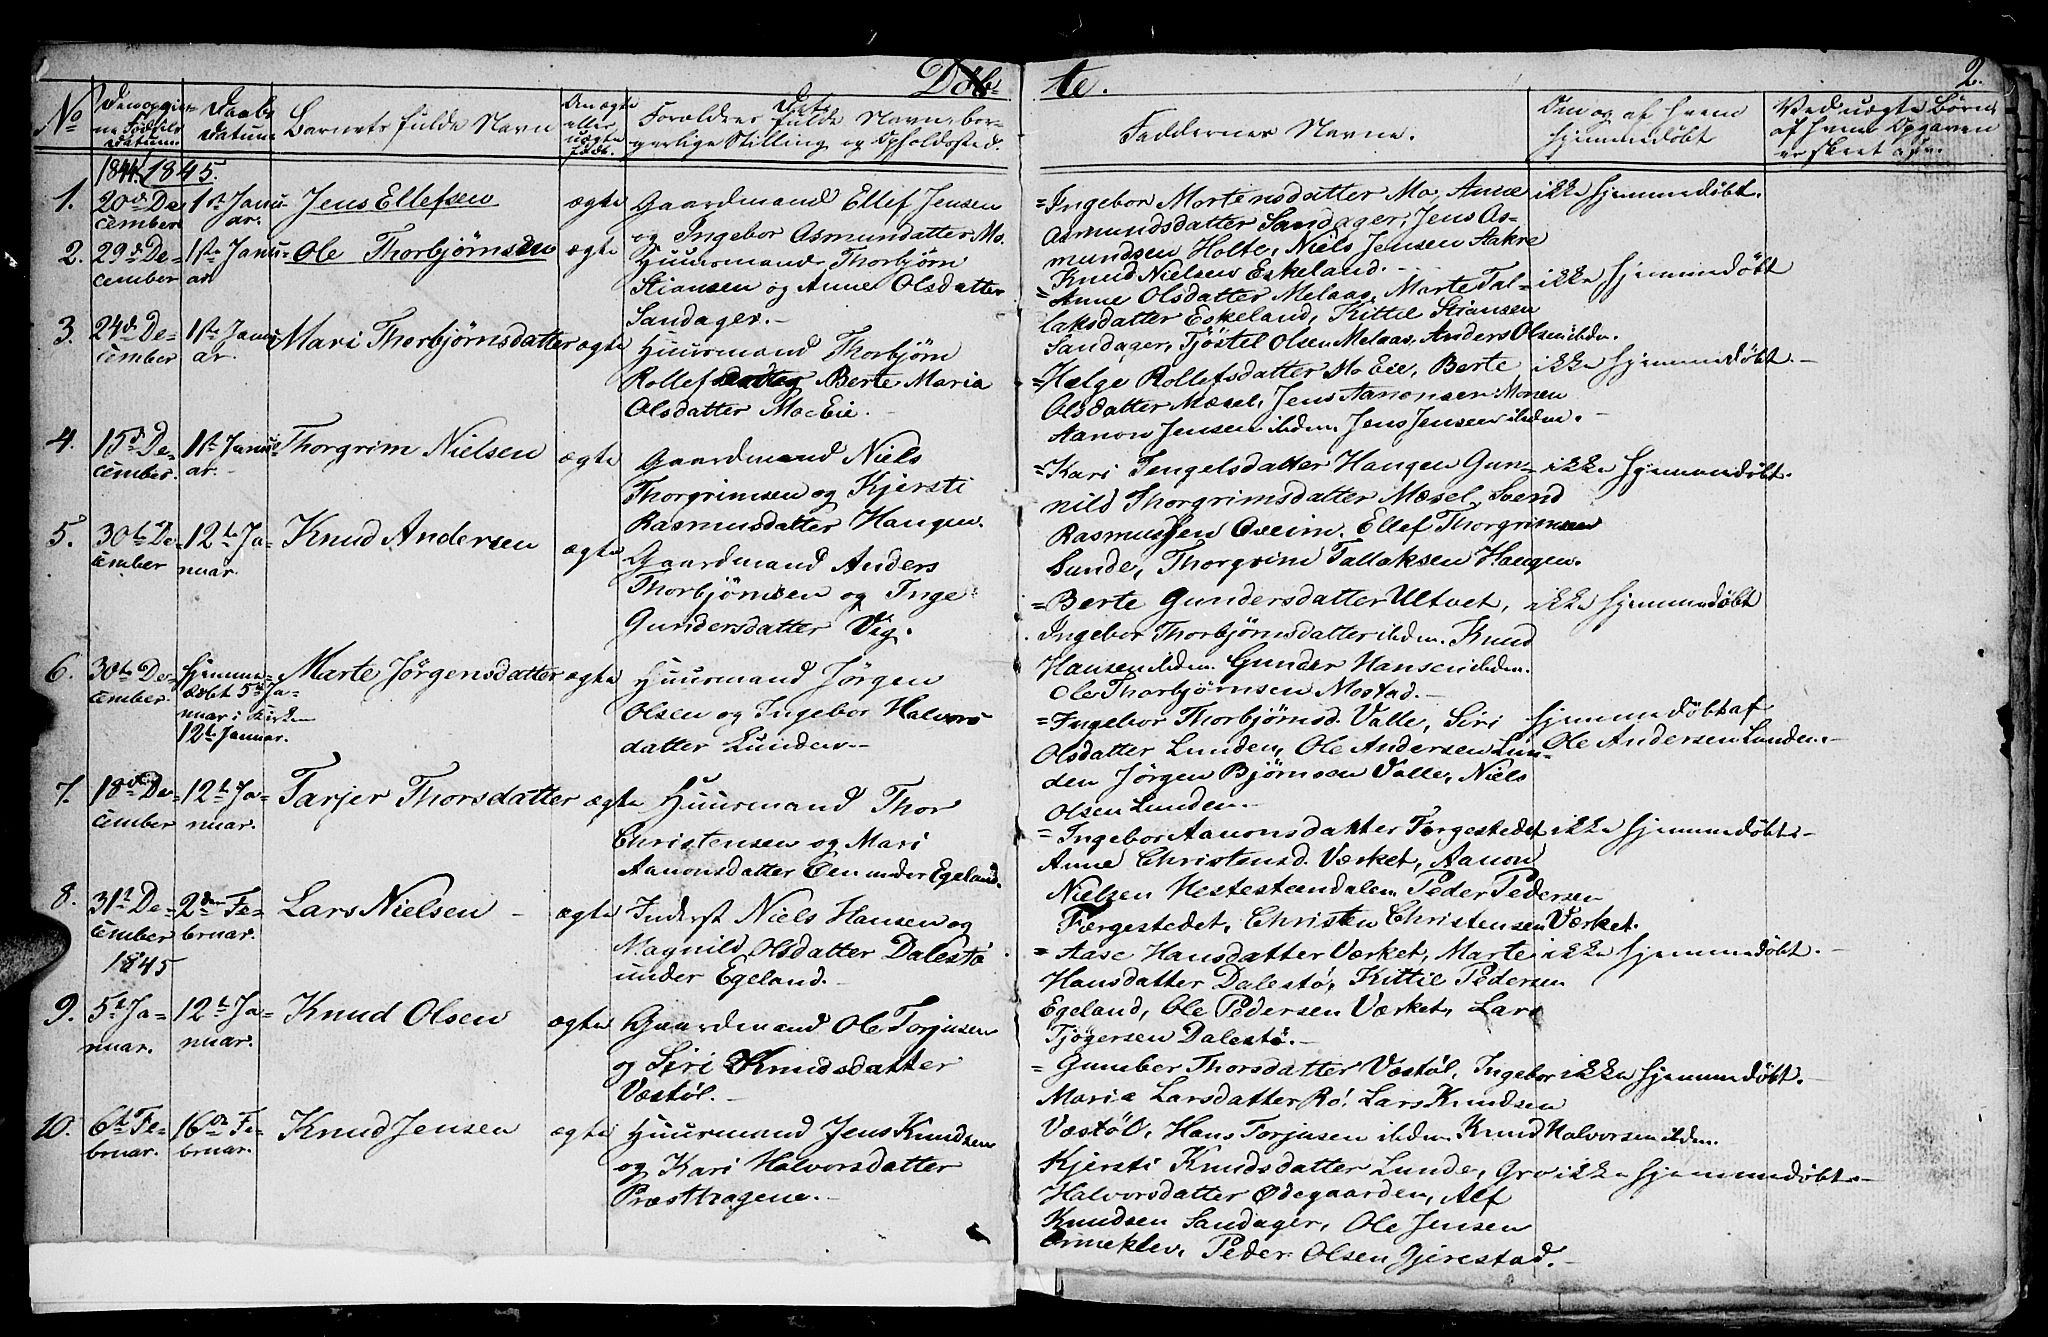 Døb-
te.
2.
No
Den opgiv-
ne Fødsels
datum.
Daabs
datum
Barnets fulde Navn
Om ægte
eller
uægte
født.
Forældres fulde Navn, bor-
gerlige Stilling og Opholdssted.
Faddernes Navne.
Om og af hvem
hjemmedøbt
Ved uægte Børn
af hvem Opgaven
er skeet
1844. 1845.
1. 20de De-
cember
1ste Janu-
ar.
Jens Ellefsen
ægte
Gaardmand Ellef Jensen
og Ingebor Asmundatter Mo.
= Ingebor Mortensdatter Mo, Anne
Asmundsdatter Sandager, Jens As-
mundsen Holte, Niels Jensen Aakre
Knud Nielsen Eskeland.-
ikke hjemmedøbt.
2. 29de De-
cember
1ste Janu-
ar
Ole Thorbjørnsen
ægte
Huusmand Thorbjørn
Stiansen og Anne Olsdatter
Sandager.-
= Anne Olsdatter Melaas, Marte Tal-
laksdatter Eskeland, Kittil Stiansen
Sandager, Tjøstel Olsen Melaas, Anders Olsen ibdm.
ikke hjemmedøbt
3. 24de De-
cember
1ste Janu-
ar.
Mari Thorbjørnsdatter
ægte
Huusmand Thorbjørn
Rollefsen og Berte Maria
Olsdatter Mo Eie.
= Helge Rollefsdatter Mo Eie, Berte
Olsdatter Mæsel, Jens Aanonsen Monen
Aanon Jensen ibdm. Jens Jensen ibdm.-
ikke hjemmedøbt.-
4. 15de De-
cember.
1ste Janu-
ar.-
Thorgrim Nielsen
ægte
Gaardmand Niels
Thorgrimsen og Kjersti
Rasmusdatter Haugen.
= Kari Tengelsdatter Haugen Gun-
nild Thorgrimsdatter Mæsel, Svend
Rasmussen Oveim, Ellef Thorgrimsen
Sunde, Thorgrim Tallaksen Haugen.
ikke hjemmedøbt.
5. 30te De-
cember
12te Ja-
nuar.
Knud Andersen
ægte
Gaardmand Anders
Thorbjørnsen og Inge
Gundersdatter Vig.
= Berte Gundersdatter Ultvet,
Ingebor Thorbjørnsdatter ibdm. Knud
Hansen ibdm. Gunder Hansen ibdm.
Ole Thorbjørnsen Mostad.-
ikke hjemmedøbt
6. 30te De-
cember.
hjemme-
døbt 5te Ja-
nuar i Kirken
12te Januar.
Marte Jørgensdatter
ægte
Huusmand Jørgen
Olsen og Ingebor Halvors-
datter Lunden.-
= Ingebor Thorbjørnsd. Valle, Siri
Olsdatter Lunden, Ole Andersen Lun-
den Jørgen Bjørnsen Valle, Niels
Olsen Lunden.-
hjemmedøbt af
Ole Andersen Lunden.-
7. 18de De-
cember
12te Ja-
nuar.
Tarjer Thorsdatter
ægte
Huusmand Thor
Christensen og Mari
Aanonsdatter Een under Egeland.
= Ingebor Aanonsdatter Færgestedet
Anne Christensd. Værket, Aanon
Nielsen Hestesteandalen Peder Pedersen
Færgestedet, Christen Christensen Værket.
ikke hjemmedøbt.-
8. 31te De-
cember
2den Fe-
bruar.
Lars Nielsen -
ægte
Inderst Niels Hansen og
Magnild Olsdatter Dalestø
under Egeland.-
= Aase Hansdatter Værket, Marte
Hansdatter Dalestø, Kittil Pedersen
Egeland, Ole Pedersen Værket, Lars
Tjøgersen Dalestø.-
ikke hjemmedøbt.-
1845
9. 5te Ja-
nuar.
12te Ja-
nuar.
Knud Olsen
ægte
Gaardmand Ole Torjusen
og Siri Knudsdatter
Væstøl.-
= Gunber Thorsdatter Væstøl, Ingebor
Maria Larsdatter Rø, Lars Knudsen
Væstøl, Hans Torjusen ibdm. Knud Halvorsen ibdm.
ikke hjemmedøbt.-
10. 6te Fe-
bruar.
16de Fe-
bruar.
Knud Jensen
ægte
Huusmand Jens Knudsen
og Kari Halvorsdatter
Præsthagene.-
Kjersti Knudsdatter Lunde, Gro
Halvorsdatter Ødegaarden, Alf
Knudsen Sandager, Ole Jensen
Ormeklev, Peder Olsen Gjerestad.-
ikke hjemmedøbt.-